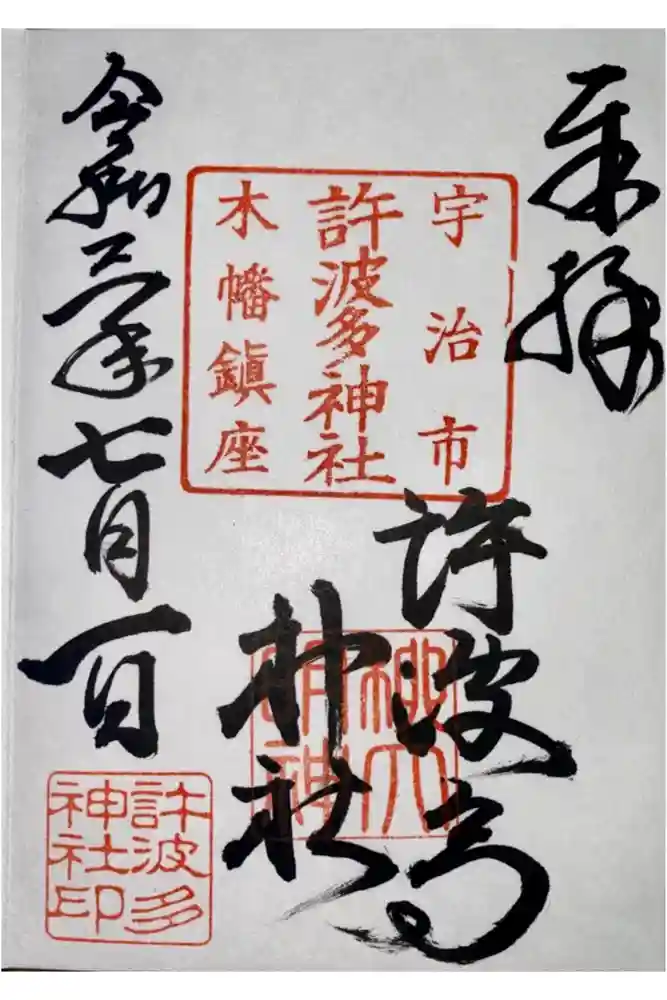 奉拝
宇治市
許波多神社
木幡鎭座
許波多
神社
柳大
明神
令和三年七月一日
許波多
神社印